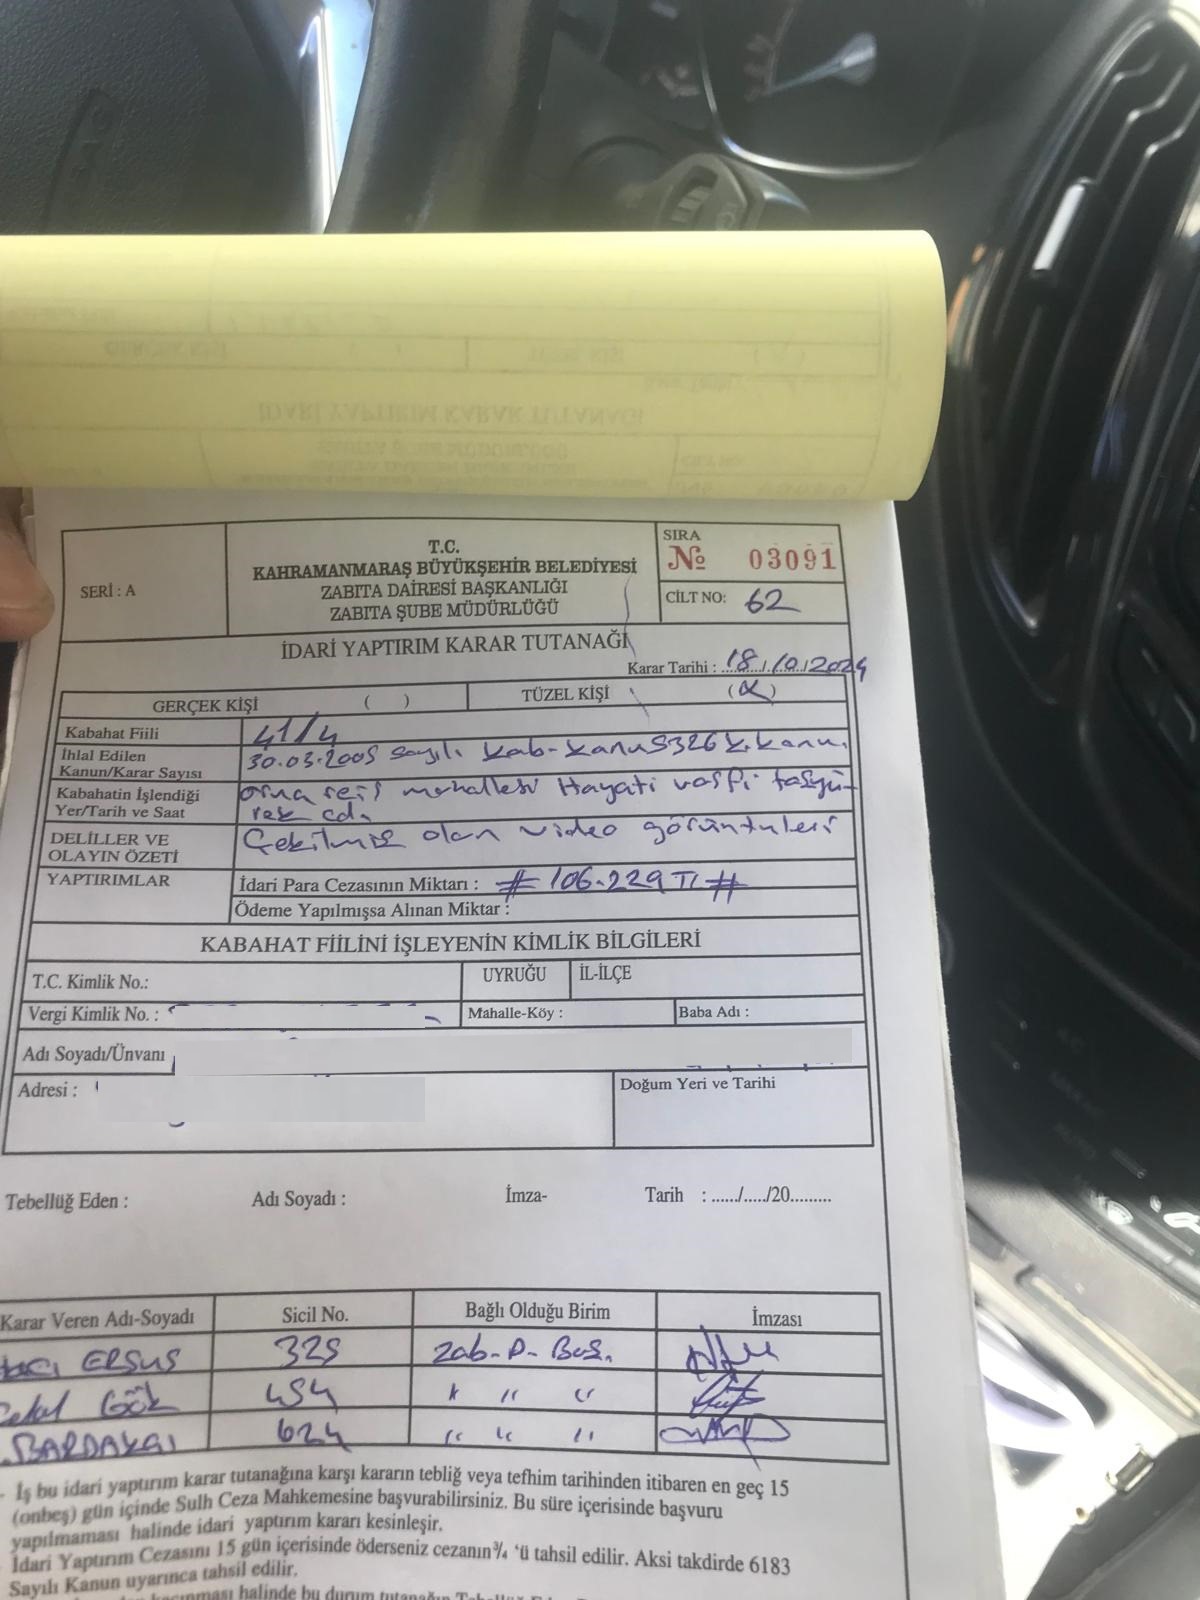 SERİ : A
T.C.
KAHRAMANMARAŞ BÜYÜKŞEHİR BELEDİYESİ
ZABITA DAİRESİ BAŞKANLIĞI
ZABITA ŞUBE MÜDÜRLÜĞÜ
SIRA
№ 03091
CİLT NO: 62
İDARİ YAPTIRIM KARAR TUTANAĞI
Karar Tarihi : 18/10/2024
GERÇEK KİŞİ ( ) TÜZEL KİŞİ (X)
Kabahat Fiili 41/4
İhlal Edilen Kanun/Karar Sayısı 30.03.2005 sayılı kab-kanu 5326 K.kanu.
Kabahatin İşlendiği Yer/Tarih ve Saat orua reis mahallesi Hayati vasfi taşyü-
rek cd.
DELİLLER VE OLAYIN ÖZETİ Çekilmiş olan video görüntüleri
YAPTIRIMLAR
İdari Para Cezasının Miktarı : # 106.229 TL #
Ödeme Yapılmışsa Alınan Miktar :
KABAHAT FİİLİNİ İŞLEYENİN KİMLİK BİLGİLERİ
T.C. Kimlik No.: UYRUĞU İL-İLÇE
Vergi Kimlik No. : Mahalle-Köy : Baba Adı :
Adı Soyadı/Ünvanı
Adresi : Doğum Yeri ve Tarihi
Tebellüğ Eden : Adı Soyadı : İmza- Tarih : ....../...../20.........
Karar Veren Adı-Soyadı Sicil No. Bağlı Olduğu Birim İmzası
ERSUS 325 Zab-D-Baş.
Gök 454 " " "
BARDAKÇI 624 " " "
- İş bu idari yaptırım karar tutanağına karşı kararın tebliğ veya tefhim tarihinden itibaren en geç 15
(onbeş) gün içinde Sulh Ceza Mahkemesine başvurabilirsiniz. Bu süre içerisinde başvuru
yapılmaması halinde idari yaptırım kararı kesinleşir.
İdari Yaptırım Cezasını 15 gün içerisinde öderseniz cezanın ¾ 'ü tahsil edilir. Aksi takdirde 6183
Sayılı Kanun uyarınca tahsil edilir.
halinde bu durum tutanağın